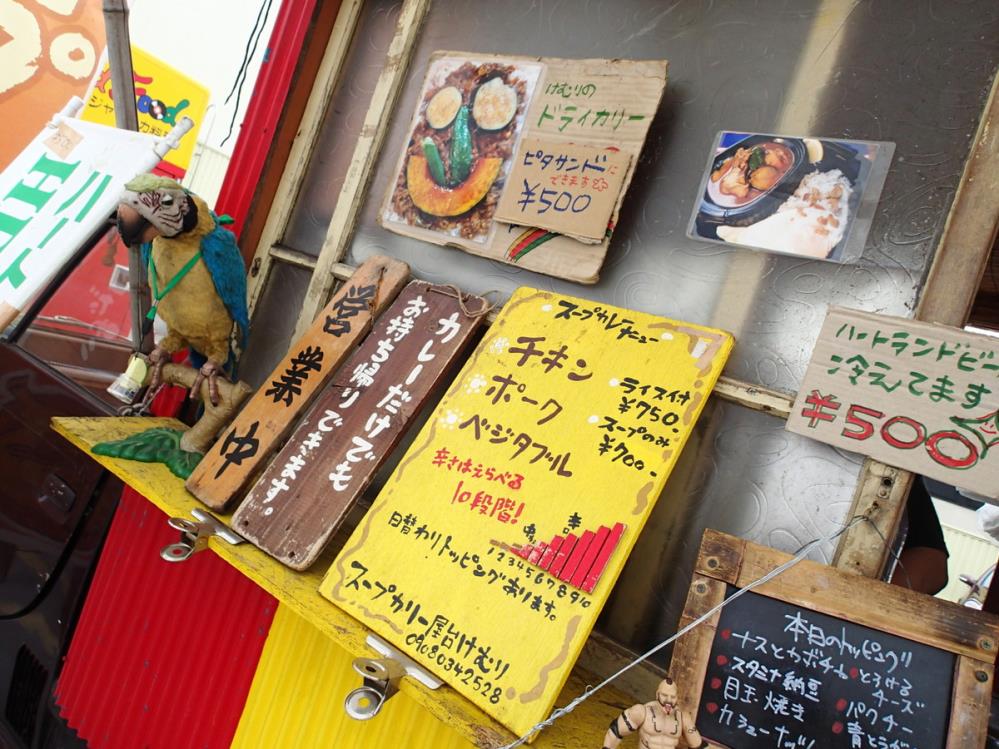 Food
ハート
けむりの
ドライカリー
ピタサンドに
できます
¥500
営業中
カレーだけでも
お持ち帰りできます。
スープカレーメニュー
チキン
ポーク
ベジタブル
ライス付
¥750-
スープのみ
¥700-
辛さはえらべる
10段階!
辛
辛
1 2 3 4 5 6 7 8 9 10
日替わりトッピングあります。
スープカリー屋台けむり
09080342528
ハートランドビー
冷えてます
¥500
本日のトッピング
ナスとカボチャ
スタミナ納豆
目玉焼き
カシューナッツ
とろける
チーズ
パクチー